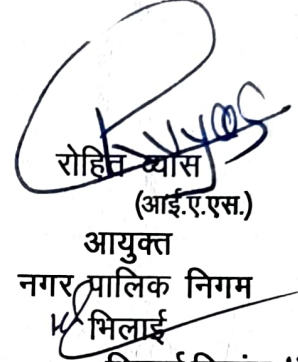 रोहित व्यास
(आई.ए.एस.)
आयुक्त
नगर पालिक निगम
भिलाई